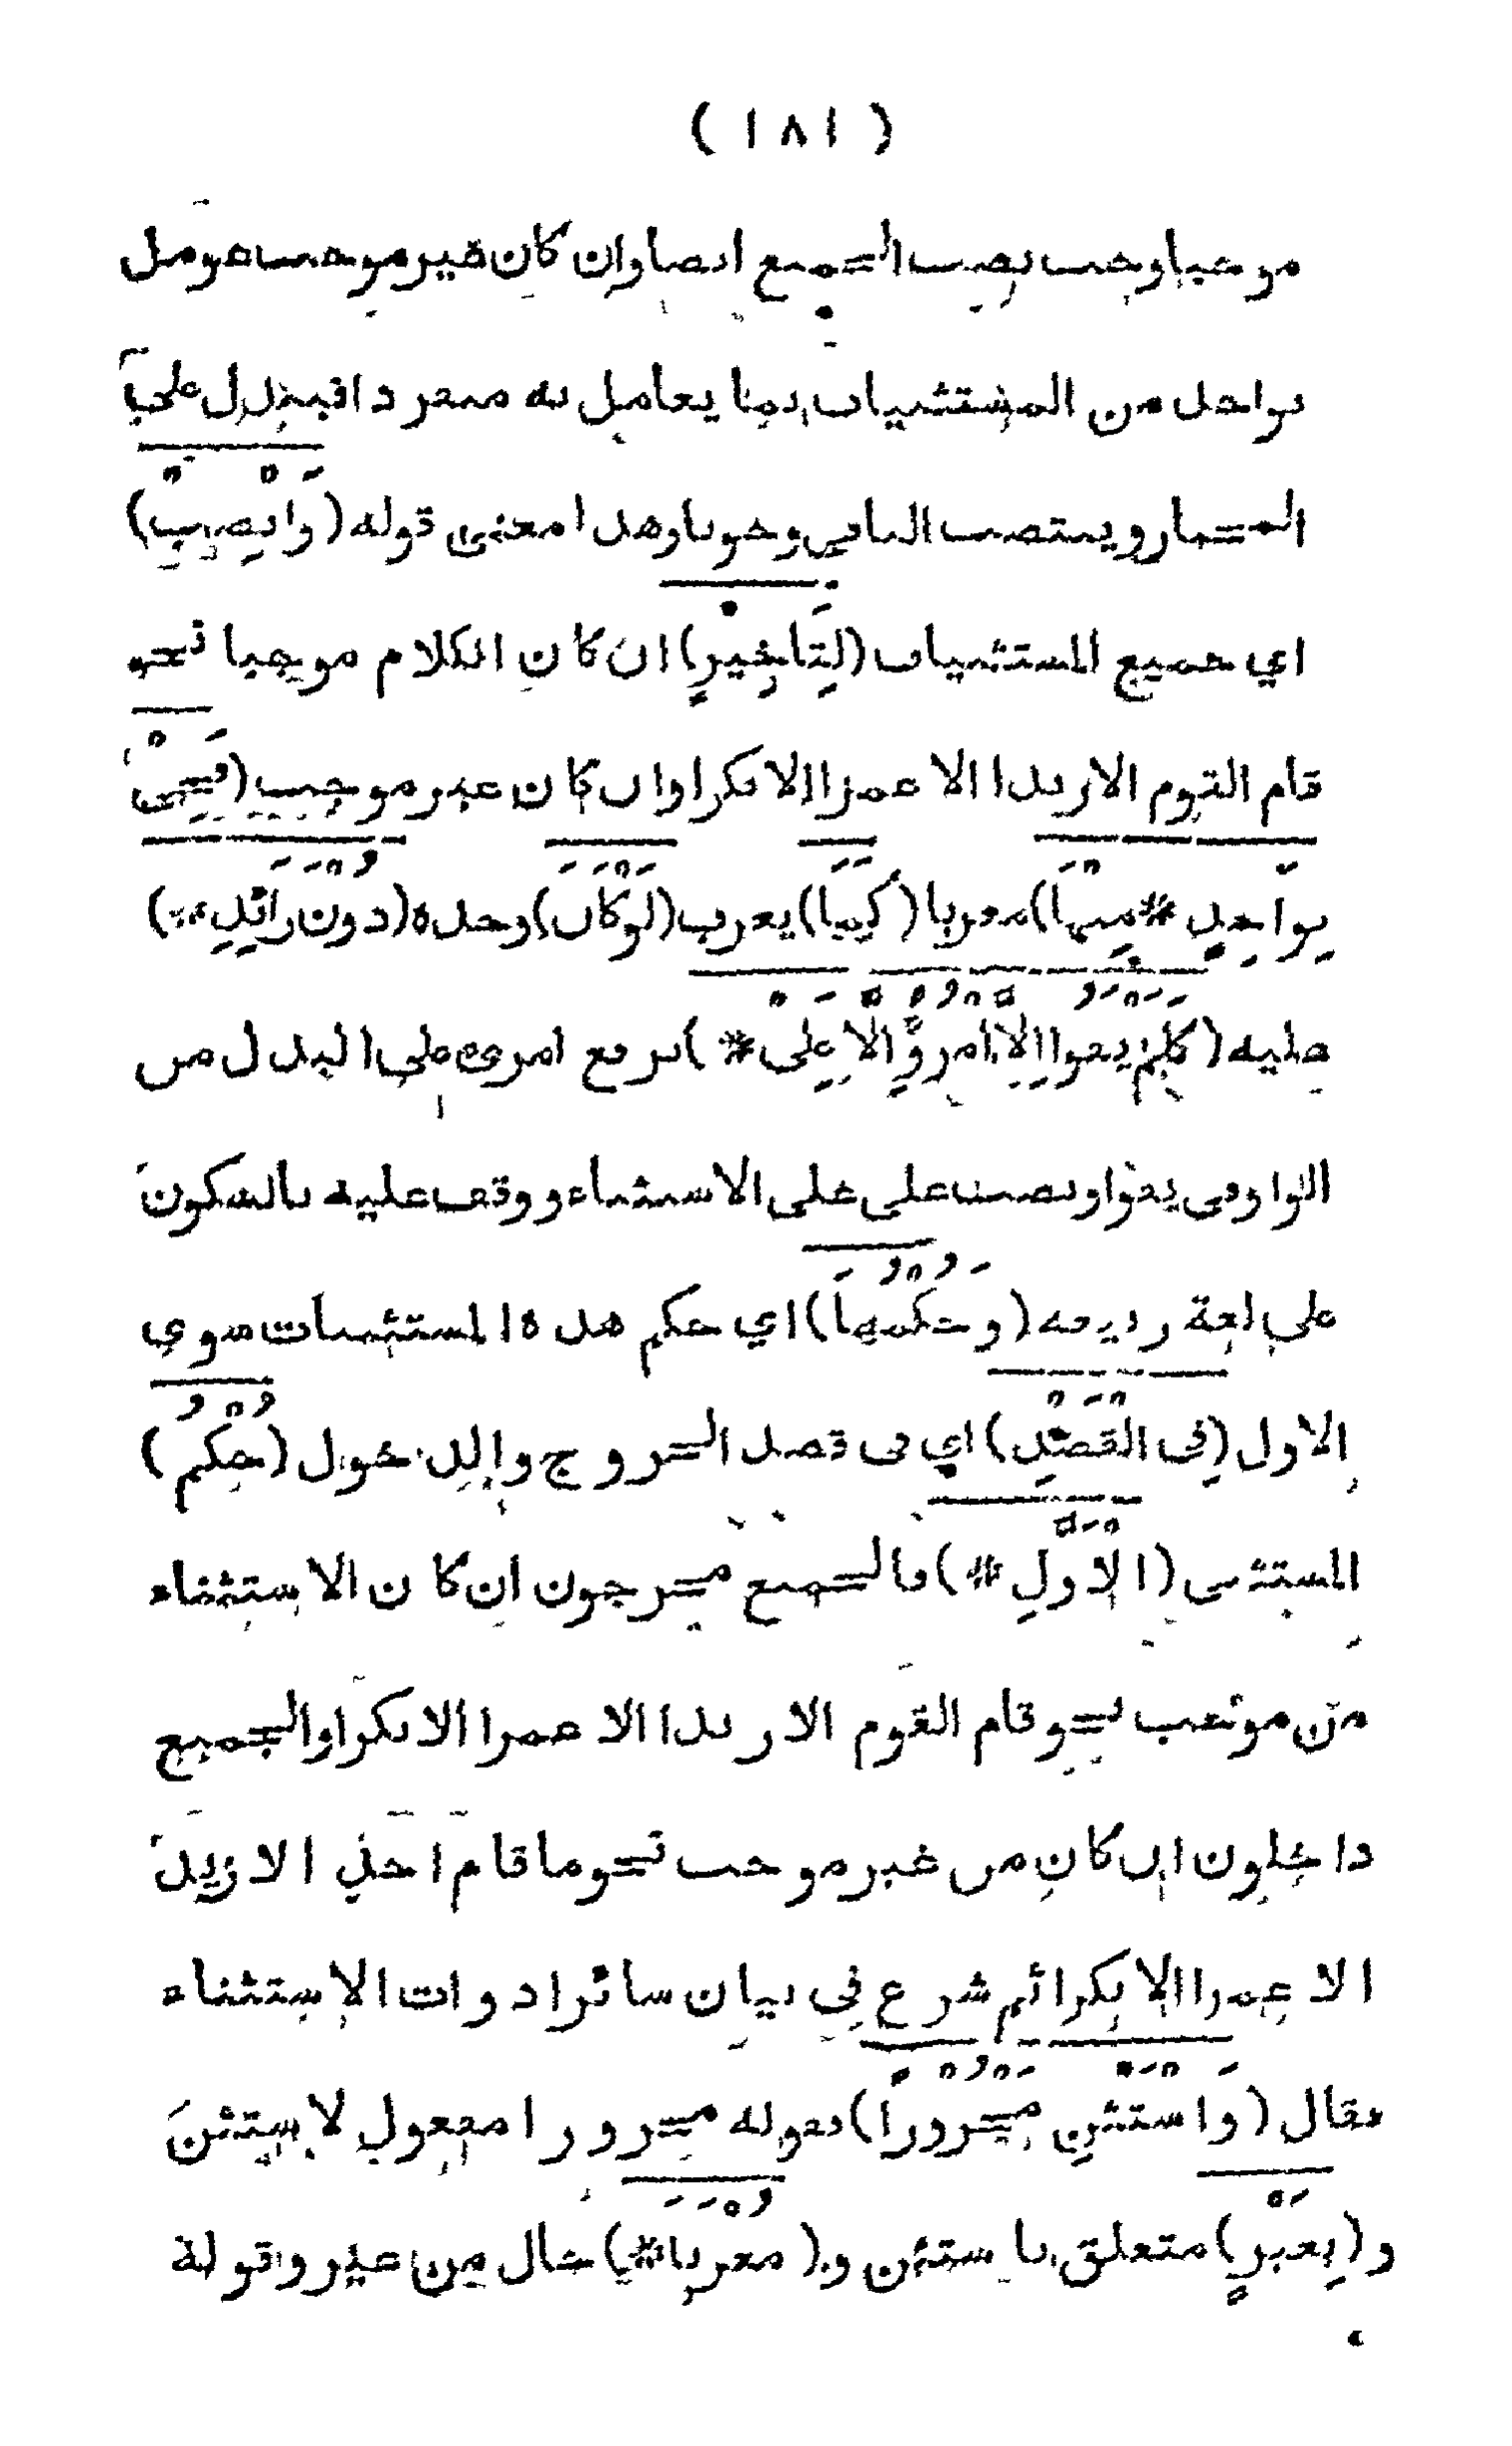 ( ١٨١ )
موجبا وجب نصب الجميع ايضا وان كان غير موجب عومل
بواحد من المستثنيات بما يعامل به منفردا فيبدل على
المختار وينتصب الباقي وجوبا وهذا معنى قوله (وَانْصِبْ)
اي جميع المستثنيات (لِتَاخِيرٍ) ان كان الكلام موجبا نحو
قام القوم الا زيدا الا عمرا الا بكرا وان كان غير موجب (فَجِيْ
بِوَاحِدٍ * مِنْهَا) معربا (كَمَا) يعرب (لَوْكَانَ) وحده (دُوْنَ زَائِدِ *)
عليه (كَلَمْ يَفُوا اِلَّا امْرُؤٌ اِلَّا عَلِىْ *) برفع امرؤ على البدل من
الواو في يفوا ونصب على على الاستثناء ووقف عليه بالسكون
على لغة ربيعه (وَحُكْمُهَا) اي حكم هذه المستثنيات سوى
الاول (فِى الْقَصْدِ) اي في قصد الخروج والدخول (حُكْمُ)
المستثنى (الْاَوَّلِ *) فالجميع مخرجون ان كان الاستثناء
من موجب نحو قام القوم الا زيدا الا عمرا الا بكرا والجميع
داخلون ان كان من غير موجب نحو ما قام احد الا زيد
الا عمرا الا بكرا ثم شرع في بيان سائر ادوات الاستثناء
فقال (وَاسْتَثْنِ مَجْرُوْرًا) فقوله مجرورا مفعول لاستثن
و (بِغَيْرٍ) متعلق باستثن و (مُعْرَبَا *) حال من غير وقوله